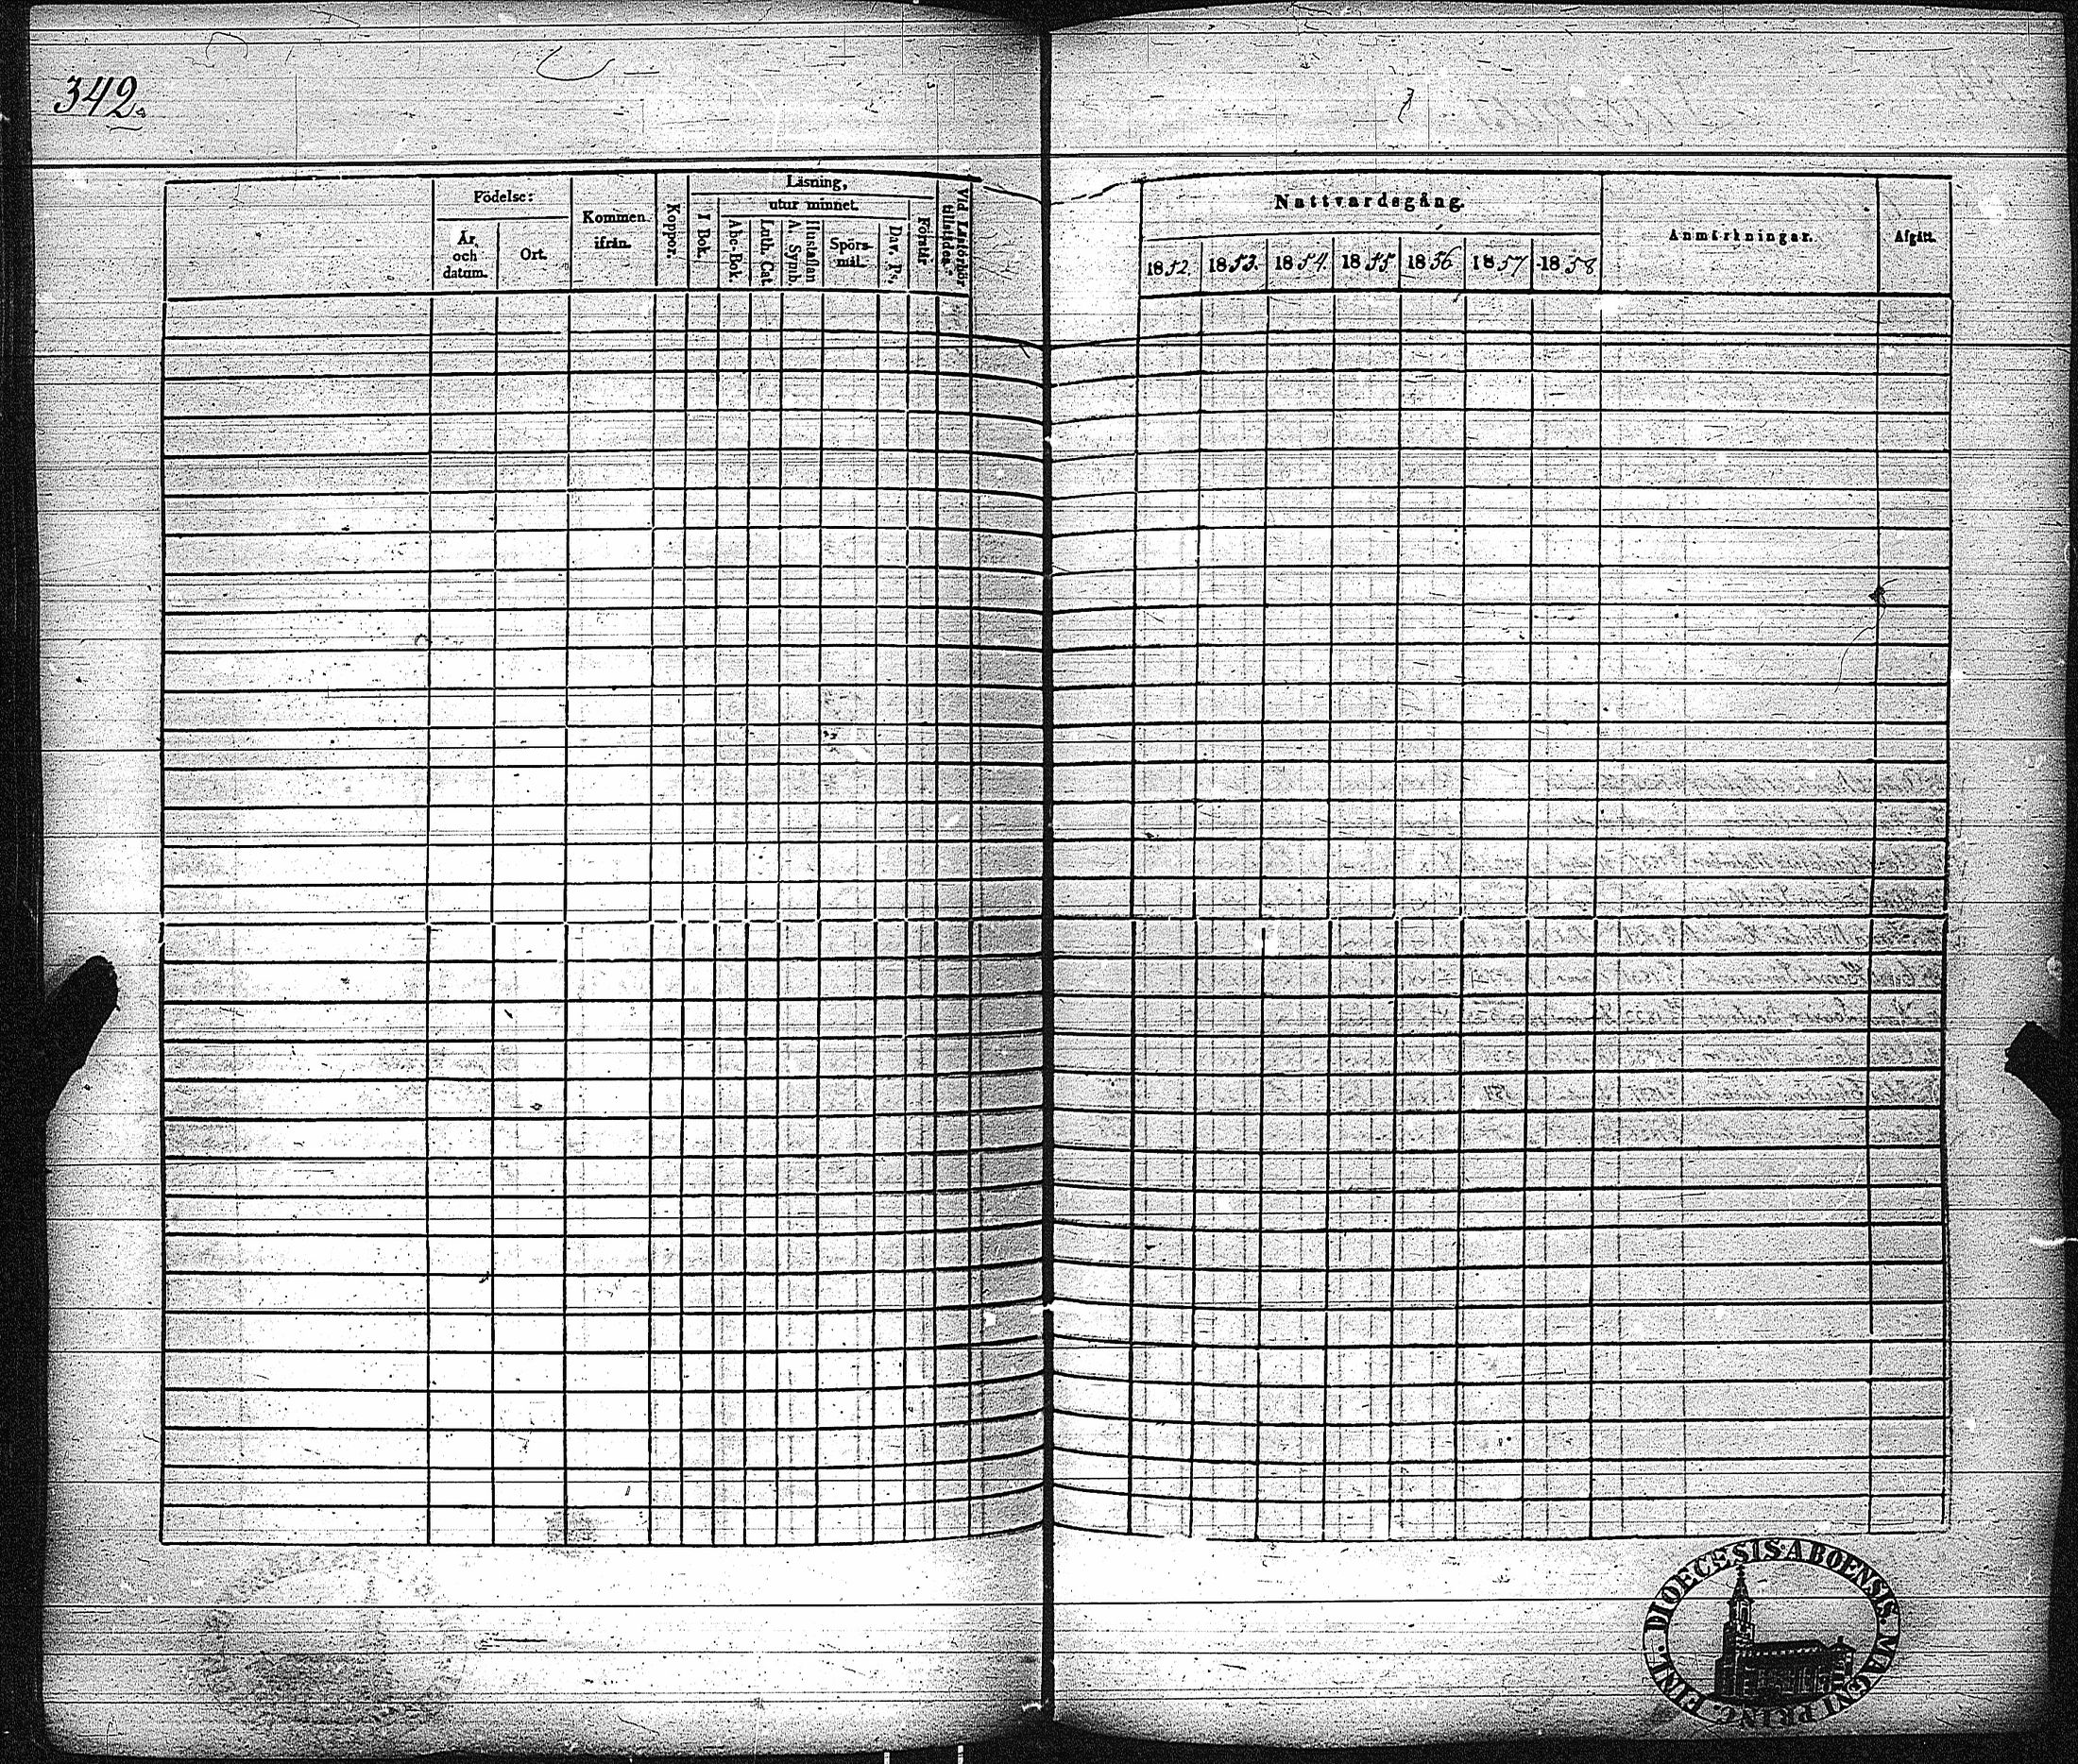 342.
Födelse:
År, och datum.
Ort.
Kommen ifrån.
Koppor.
Läsning,
I Bok.
utur minnet.
Abc-Bok.
Luth. Cat.
Hustaflan A. Symb.
Spörs-mål.
Dav. Ps.
Förstår
Vid Läsförhör tillstädes.
Nattvardsgång.
1852.
1853.
1854.
1855
1856
1857
1858
Anmärkningar.
Afgått.
DIOECESIS ABOENSIS. MAGNI PRINC. FINL.